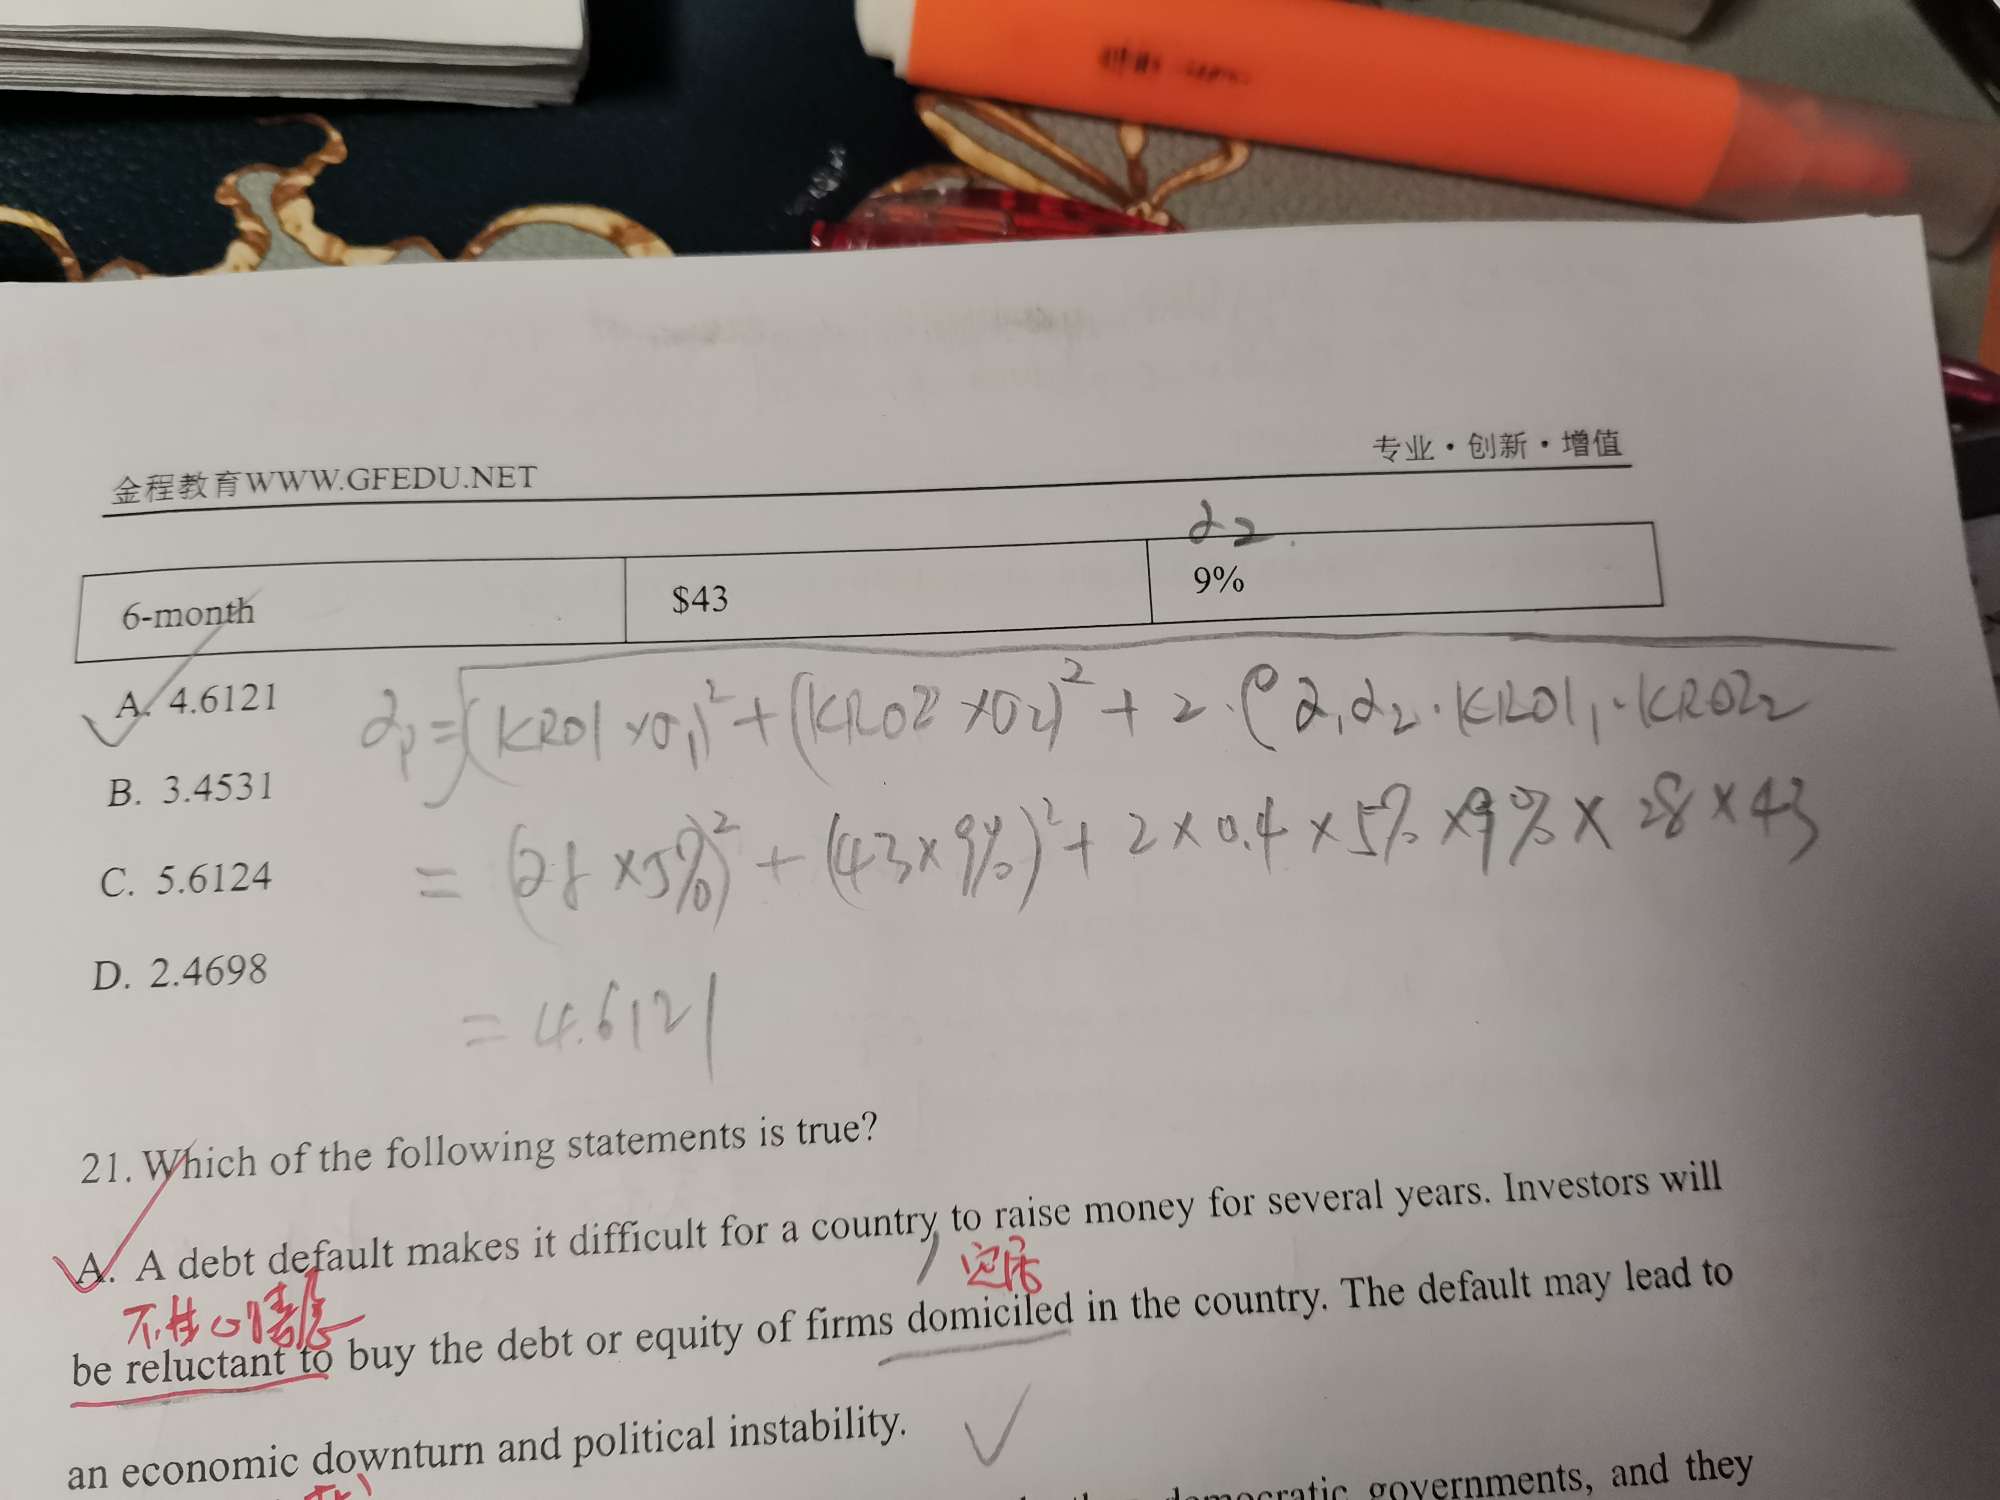 专业·创新·增值
金程教育WWW.GFEDU.NET
σ2
6-month $43 9%
A. 4.6121
σp=√(KR01×σ1)²+(KR02×σ2)²+2·ρσ1σ2·KR01₁·KR02₂
B. 3.4531
=(28×5%)²+(43×9%)²+2×0.4×5%×9%×28×43
C. 5.6124
D. 2.4698
=4.6121
21. Which of the following statements is true?
A. A debt default makes it difficult for a country to raise money for several years. Investors will
定居
不情愿
be reluctant to buy the debt or equity of firms domiciled in the country. The default may lead to
an economic downturn and political instability.
democratic governments, and they